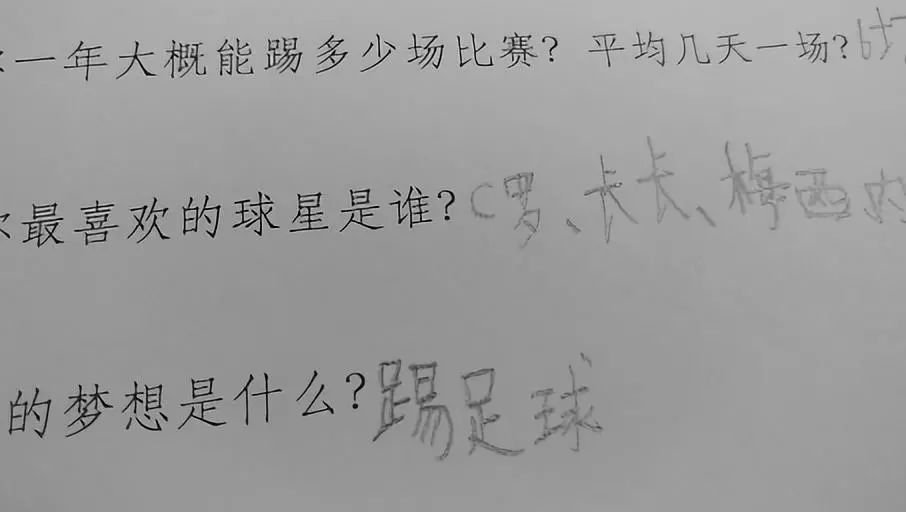 一年大概能踢多少场比赛？平均几天一场？6场
最喜欢的球星是谁？C罗、卡卡、梅西、内
的梦想是什么？踢足球